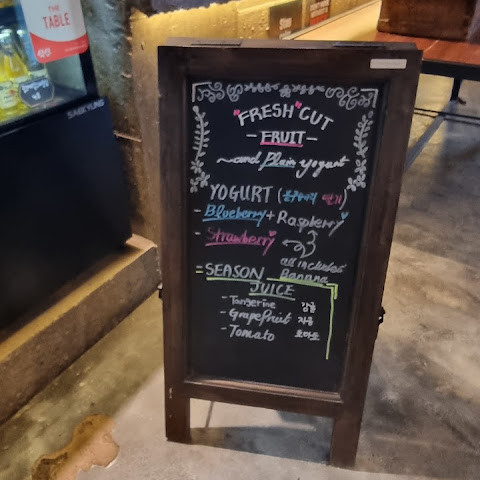 THE
TABLE
SAEKYUNG
"FRESH" CUT
- FRUIT -
~and plain yogurt
YOGURT (블루베리 딸기)
- Blueberry + Raspberry
- Strawberry
all includes
Banana
= SEASON
JUICE
- Tangerine 감귤
- Grapefruit 자몽
- Tomato 토마토